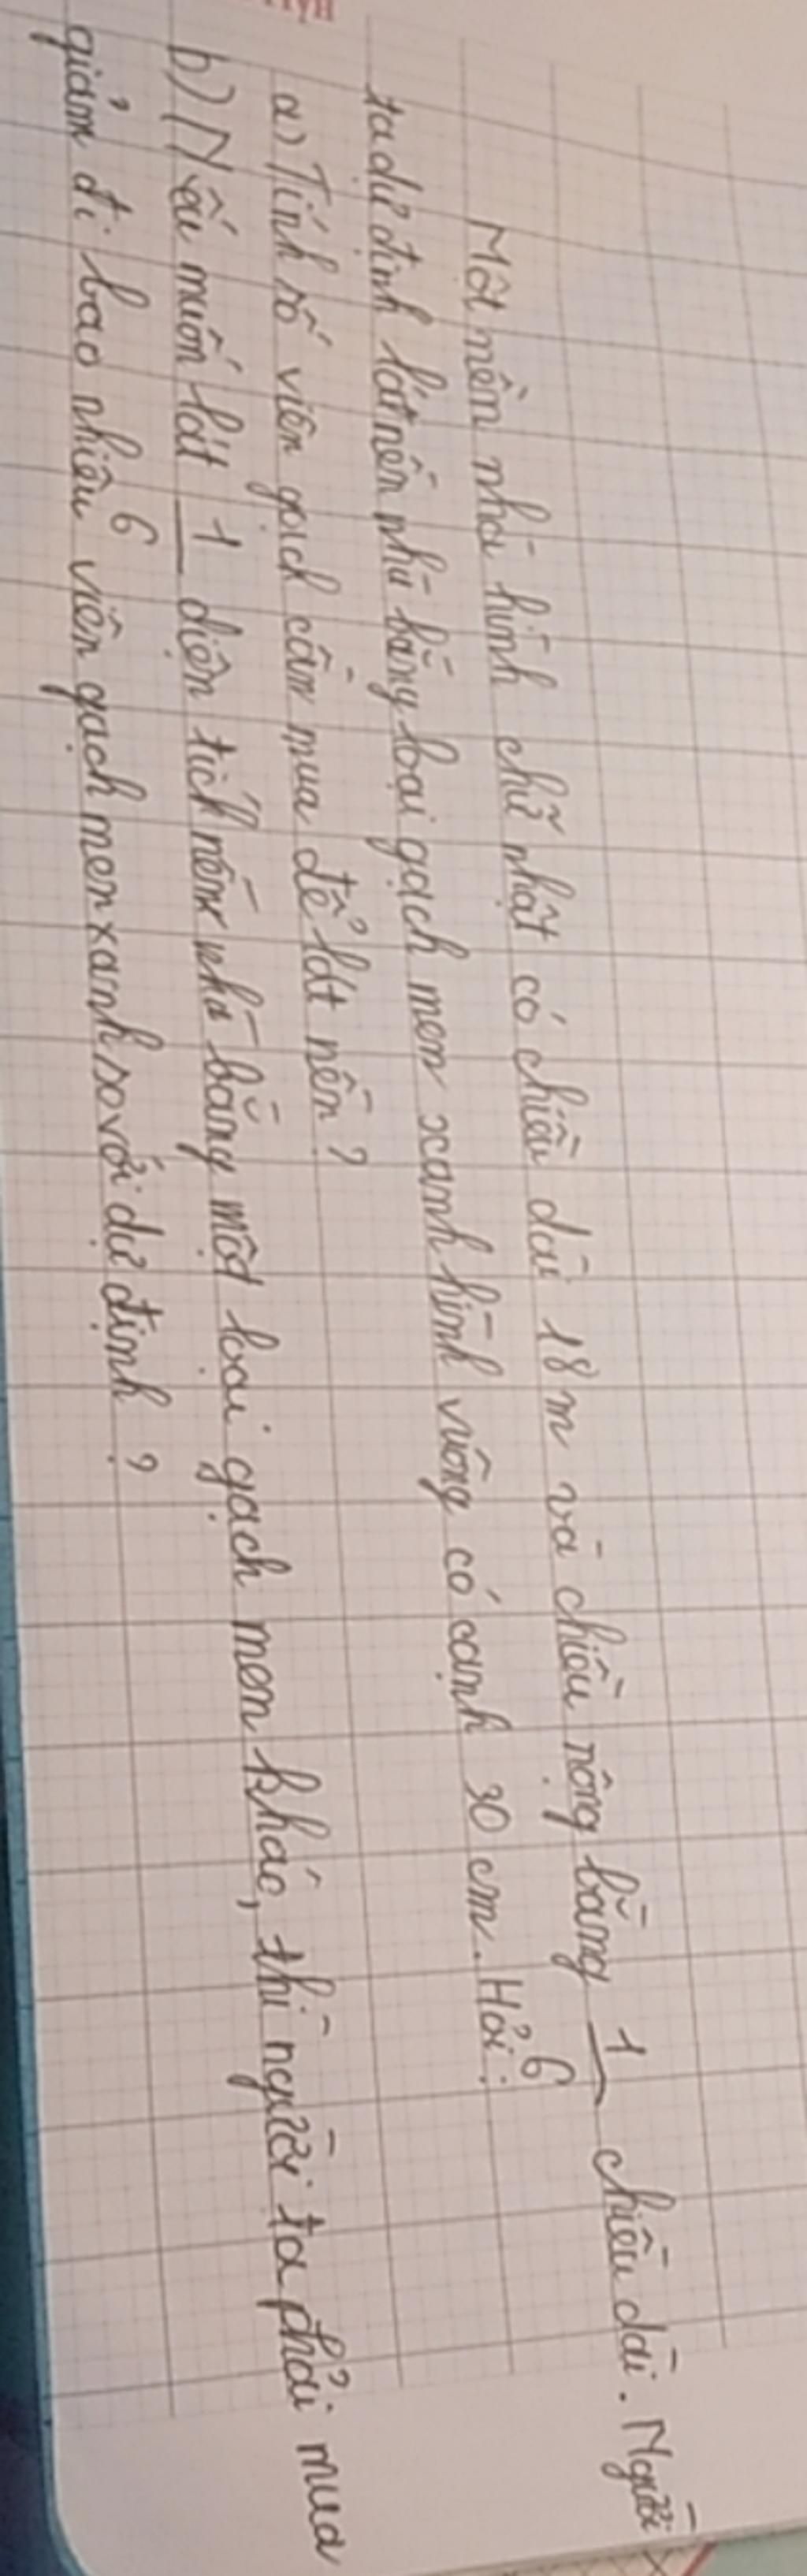 Một nền nhà hình chữ nhật có chiều dài 18 m và chiều rộng bằng 1/6 chiều dài. Người
ta dự định lát nền nhà bằng loại gạch men xanh hình vuông có cạnh 30 cm. Hỏi:
a) Tính số viên gạch cần mua để lát nền?
b) Nếu muốn lát 1/6 diện tích nền nhà bằng một loại gạch men khác, thì người ta phải mua
giảm đi bao nhiêu viên gạch men xanh so với dự định?